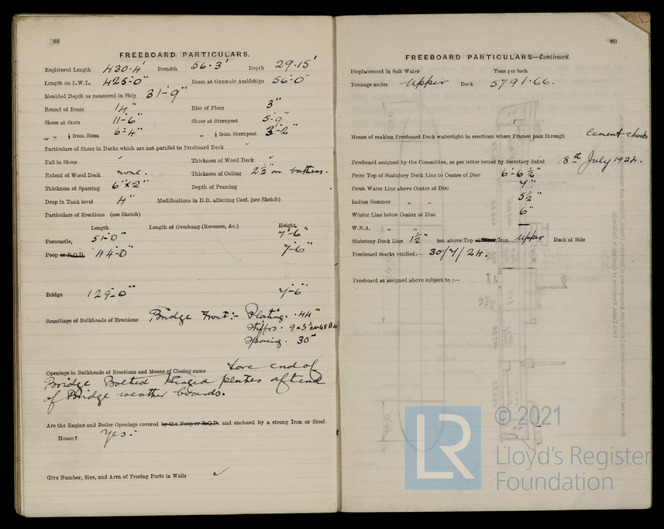 88
FREEBOARD PARTICULARS.
Registered Length 430.4' Breadth 56.3' Depth 29.15'
Length on L.W.L. 425-0" Beam at Gunwale Amidships 56-0"
Moulded Depth as measured in Ship 31-9"
Round of Beam 14" Rise of Floor 3"
Sheer at Stem 11-6" Sheer at Sternpost 5-9"
" " ⅛ from Stem 6-4" " ⅛ from Sternpost 3-2"
Particulars of Sheer in Decks which are not parallel to Freeboard Deck
Fall in Sheer Thickness of Wood Deck
Extent of Wood Deck none. Thickness of Ceiling 2½" on battens.
Thickness of Sparring 6"x2" Depth of Framing
Drop in Tank level 4" Modifications in D.B. affecting Coef. (see Sketch)
Particulars of Erections (see Sketch)
Length Length of Overhang (Recesses, &c.) Height
Forecastle, 51-0" 7-6"
Poop or R.Q.D. 44-0" 7-6"
Bridge 129-0" 7-6"
Scantlings of Bulkheads of Erections Bridge Front:- Plating .44"
Stiffrs.
Spacing 30"
Openings in Bulkheads of Erections and Means of Closing same Fore end of
Bridge Bolted Hinged plates aft end
of Bridge weather boards.
Are the Engine and Boiler Openings covered by the Poop or R.Q.D. and enclosed by a strong Iron or Steel
House? Yes.
Give Number, Size, and Area of Freeing Ports in Wells
89
FREEBOARD PARTICULARS—Continued.
Displacement in Salt Water Tons per inch
Tonnage under Upper Deck 5791.66.
Means of making Freeboard Deck watertight in erections where Frames pass through Cement chocks
Freeboard assigned by the Committee, as per letter issued by Secretary dated 18th July 1924.
From Top of Statutory Deck Line to Centre of Disc 6-6½"
Fresh Water Line above Centre of Disc
Indian Summer " " 5½"
Winter Line below Centre of Disc 6"
W.N.A. " " —
Statutory Deck Line 1½" ins. above Top of Iron Upper Deck at Side
Freeboard Marks verified:— 30/7/24.
Freeboard as assigned above subject to:—
LR
© 2021
Lloyd's Register
Foundation